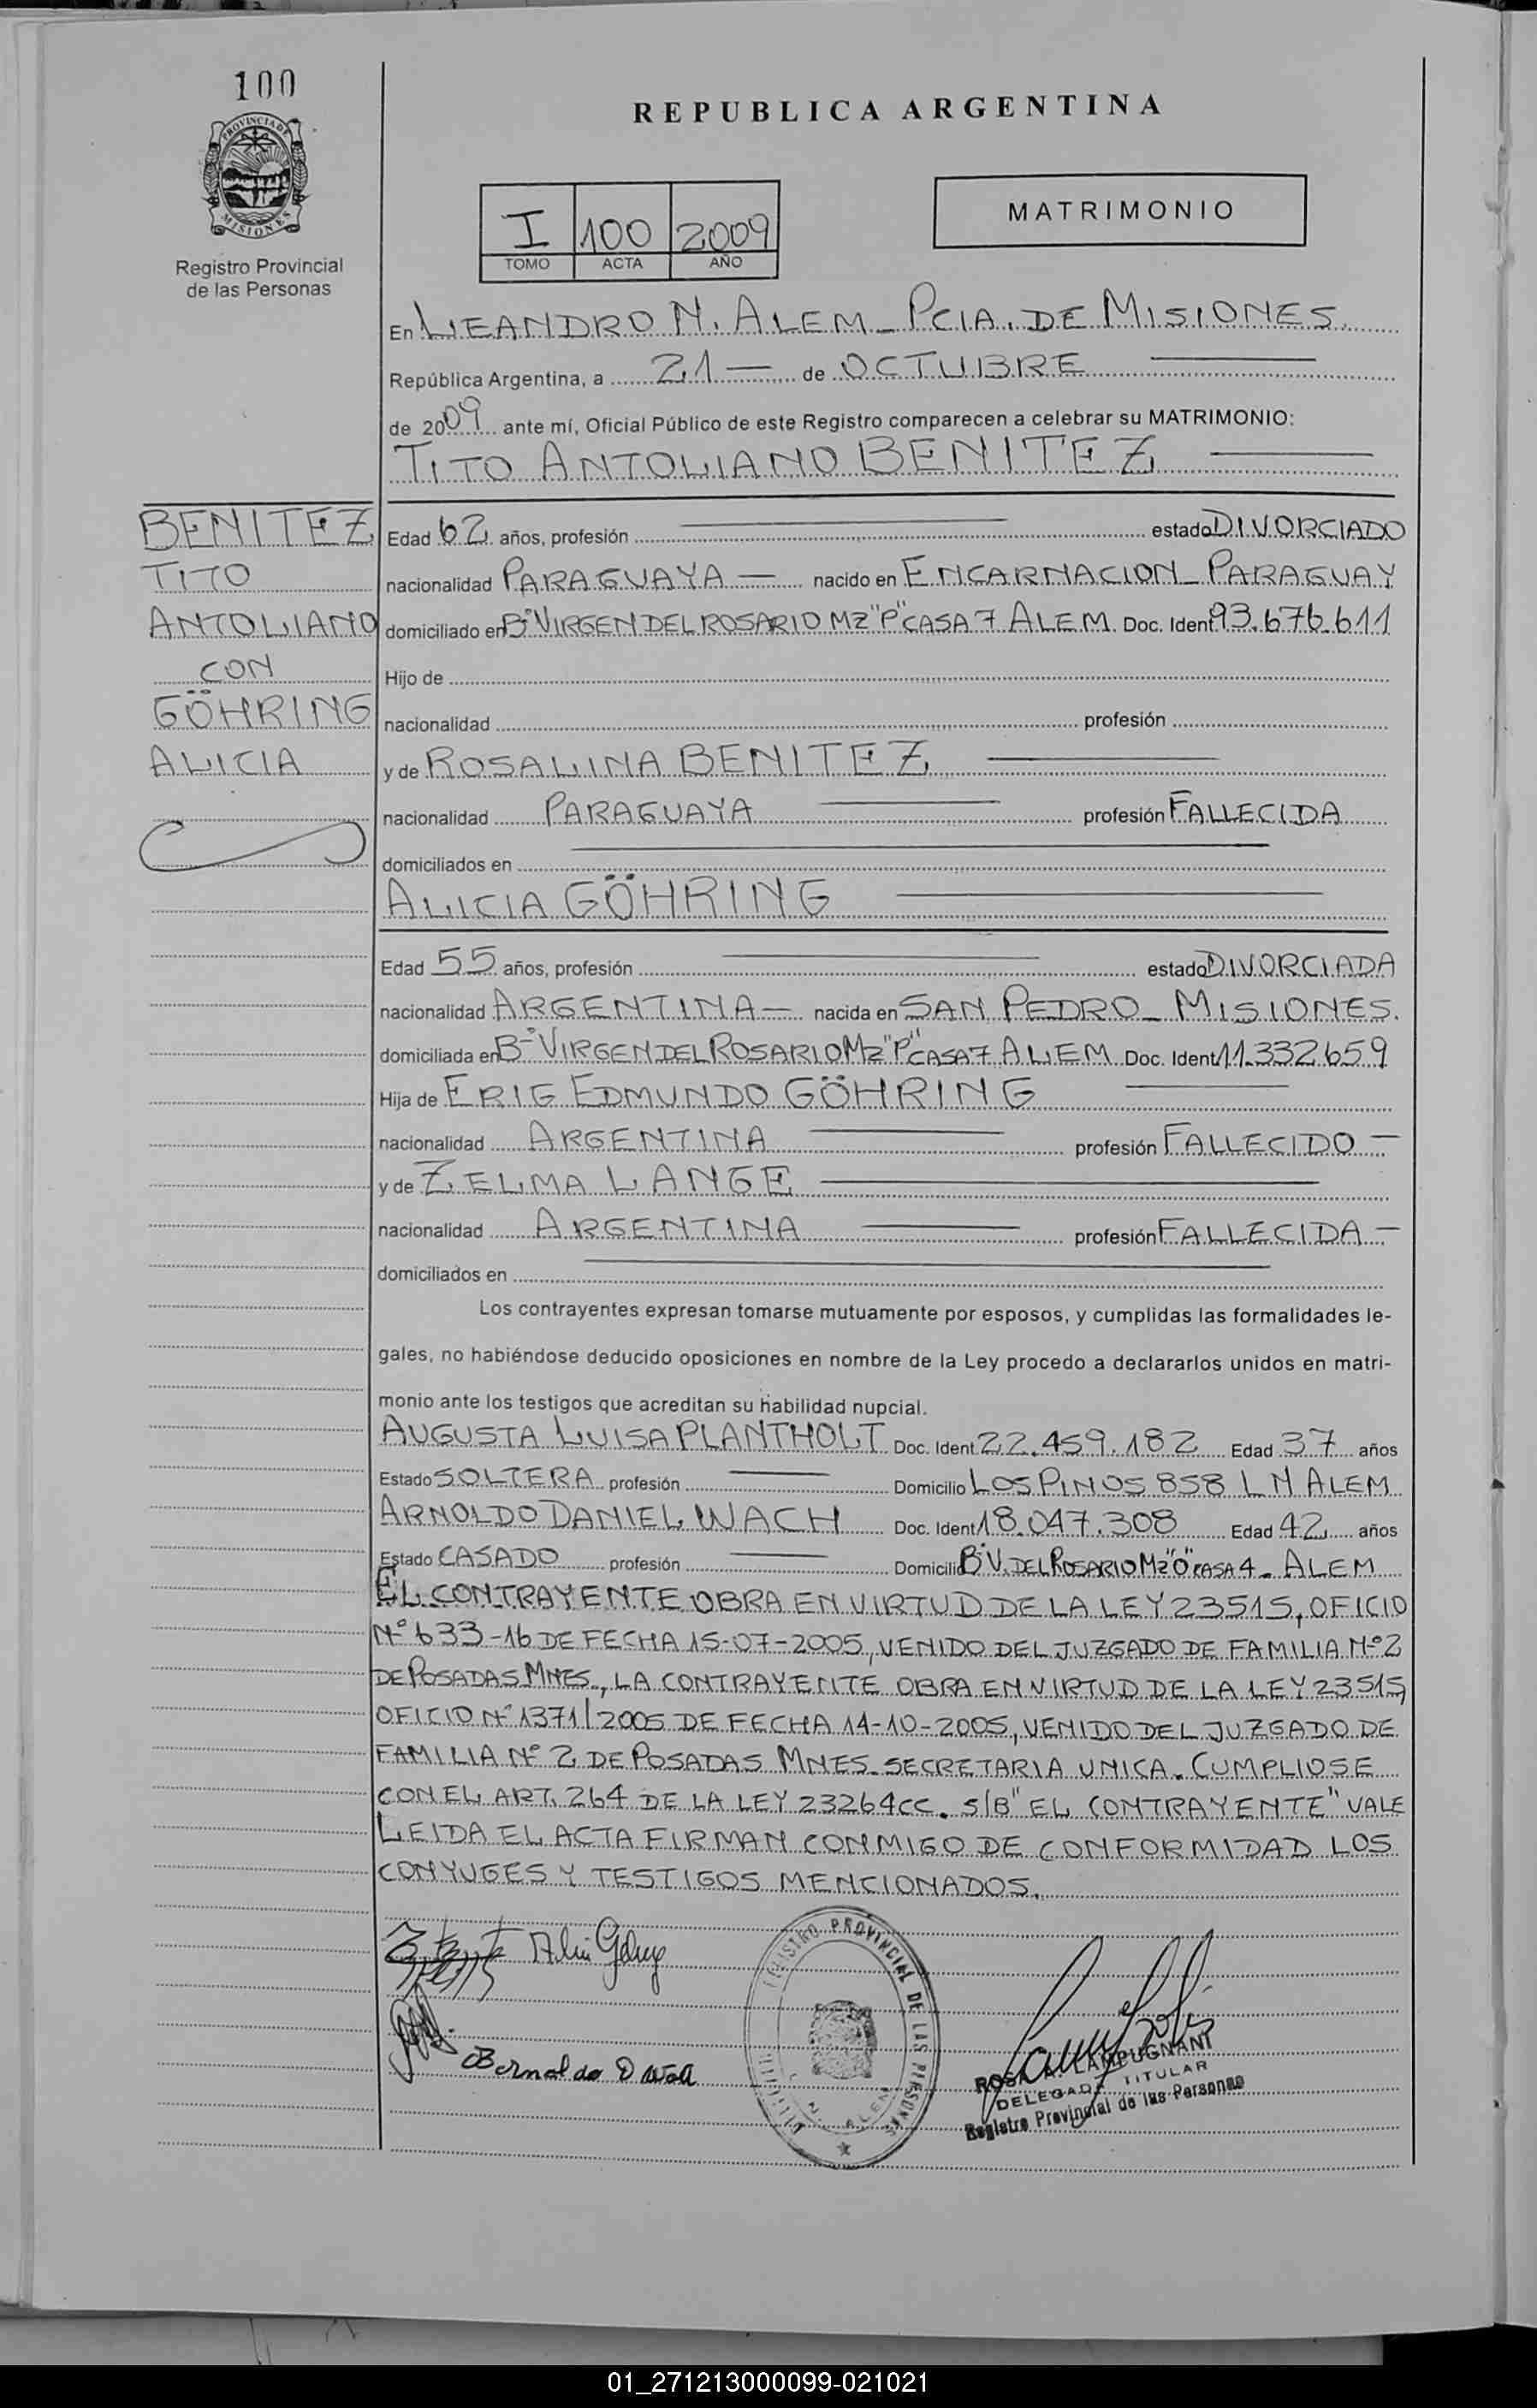 100
PROVINCIA DE
MISIONES
Registro Provincial
de las Personas
REPUBLICA ARGENTINA
I 100 2009
TOMO ACTA AÑO
MATRIMONIO
En LEANDRO N. ALEM _ PCIA. DE MISIONES.
República Argentina, a 21 — de OCTUBRE
de 2009 ante mí, Oficial Público de este Registro comparecen a celebrar su MATRIMONIO:
TITO ANTOLIANO BENITEZ
BENITEZ
TITO
ANTOLIANO
CON
GÖHRING
ALICIA
Edad 62 años, profesión estado DIVORCIADO
nacionalidad PARAGUAYA — nacido en ENCARNACION _ PARAGUAY
domiciliado en B° VIRGEN DEL ROSARIO MZ "P" CASA 7 ALEM Doc. Ident 93.676.611
Hijo de
nacionalidad profesión
y de ROSALINA BENITEZ
nacionalidad PARAGUAYA profesión FALLECIDA
domiciliados en
ALICIA GÖHRING
Edad 55 años, profesión estado DIVORCIADA
nacionalidad ARGENTINA — nacida en SAN PEDRO _ MISIONES.
domiciliada en B° VIRGEN DEL ROSARIO MZ "P" CASA 7 ALEM Doc. Ident 11.332.659
Hija de ERIG EDMUNDO GÖHRING
nacionalidad ARGENTINA profesión FALLECIDO —
y de ZELMA LANGE
nacionalidad ARGENTINA profesión FALLECIDA —
domiciliados en
Los contrayentes expresan tomarse mutuamente por esposos, y cumplidas las formalidades le-
gales, no habiéndose deducido oposiciones en nombre de la Ley procedo a declararlos unidos en matri-
monio ante los testigos que acreditan su habilidad nupcial.
AUGUSTA LUISA PLANTHOLT Doc. Ident. 22.459.182 Edad 37 años
Estado SOLTERA profesión Domicilio LOS PINOS 858 L N ALEM
ARNOLDO DANIEL WACH Doc. Ident 18.047.308 Edad 42 años
Estado CASADO profesión Domicilio B° V. DEL ROSARIO MZ "O" CASA 4 _ ALEM
EL CONTRAYENTE OBRA EN VIRTUD DE LA LEY 23515, OFICIO
N° 633-16 DE FECHA 15-07-2005, VENIDO DEL JUZGADO DE FAMILIA N° 2
DE POSADAS MNES., LA CONTRAYENTE OBRA EN VIRTUD DE LA LEY 23515,
OFICIO N° 1371/2005 DE FECHA 14-10-2005, VENIDO DEL JUZGADO DE
FAMILIA N° 2 DE POSADAS MNES. SECRETARIA UNICA. CUMPLIOSE
CON EL ART. 264 DE LA LEY 23264 CC. S/B "EL CONTRAYENTE" VALE
LEIDA EL ACTA FIRMAN CONMIGO DE CONFORMIDAD LOS
CONYUGES Y TESTIGOS MENCIONADOS.
REGISTRO PROVINCIAL DE LAS PERSONAS
LAMPUGNANI
DELEGADA TITULAR
Registro Provincial de las Personas
01_271213000099-021021